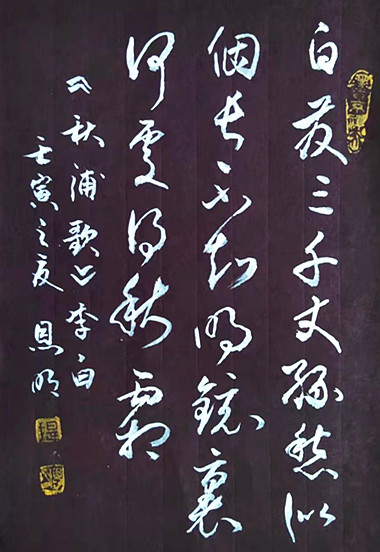 白发三千丈缘愁似
個长不知明镜裏
何處得秋霜
《秋浦歌》李白
壬寅之夏 恩明